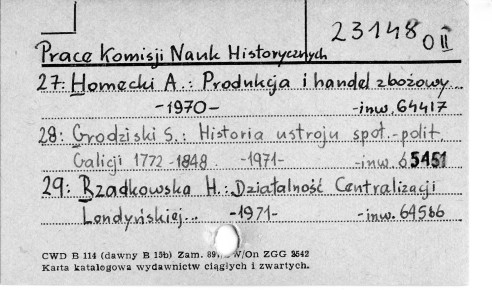 23148 O II
Prace Komisji Nauk Historycznych
27: Homecki A.: Produkcja i handel zbożowy...
-1970- -inw. 64417
28: Grodziski S.: Historia ustroju społ.-polit.
Galicji 1772-1848. -1971- -inw. 65451
29: Rzadkowska H.: Działalność Centralizacji
Londyńskiej... -1971- -inw. 64566
CWD B 114 (dawny B 15b) Zam. W/On ZGG 2542
Karta katalogowa wydawnictw ciągłych i zwartych.